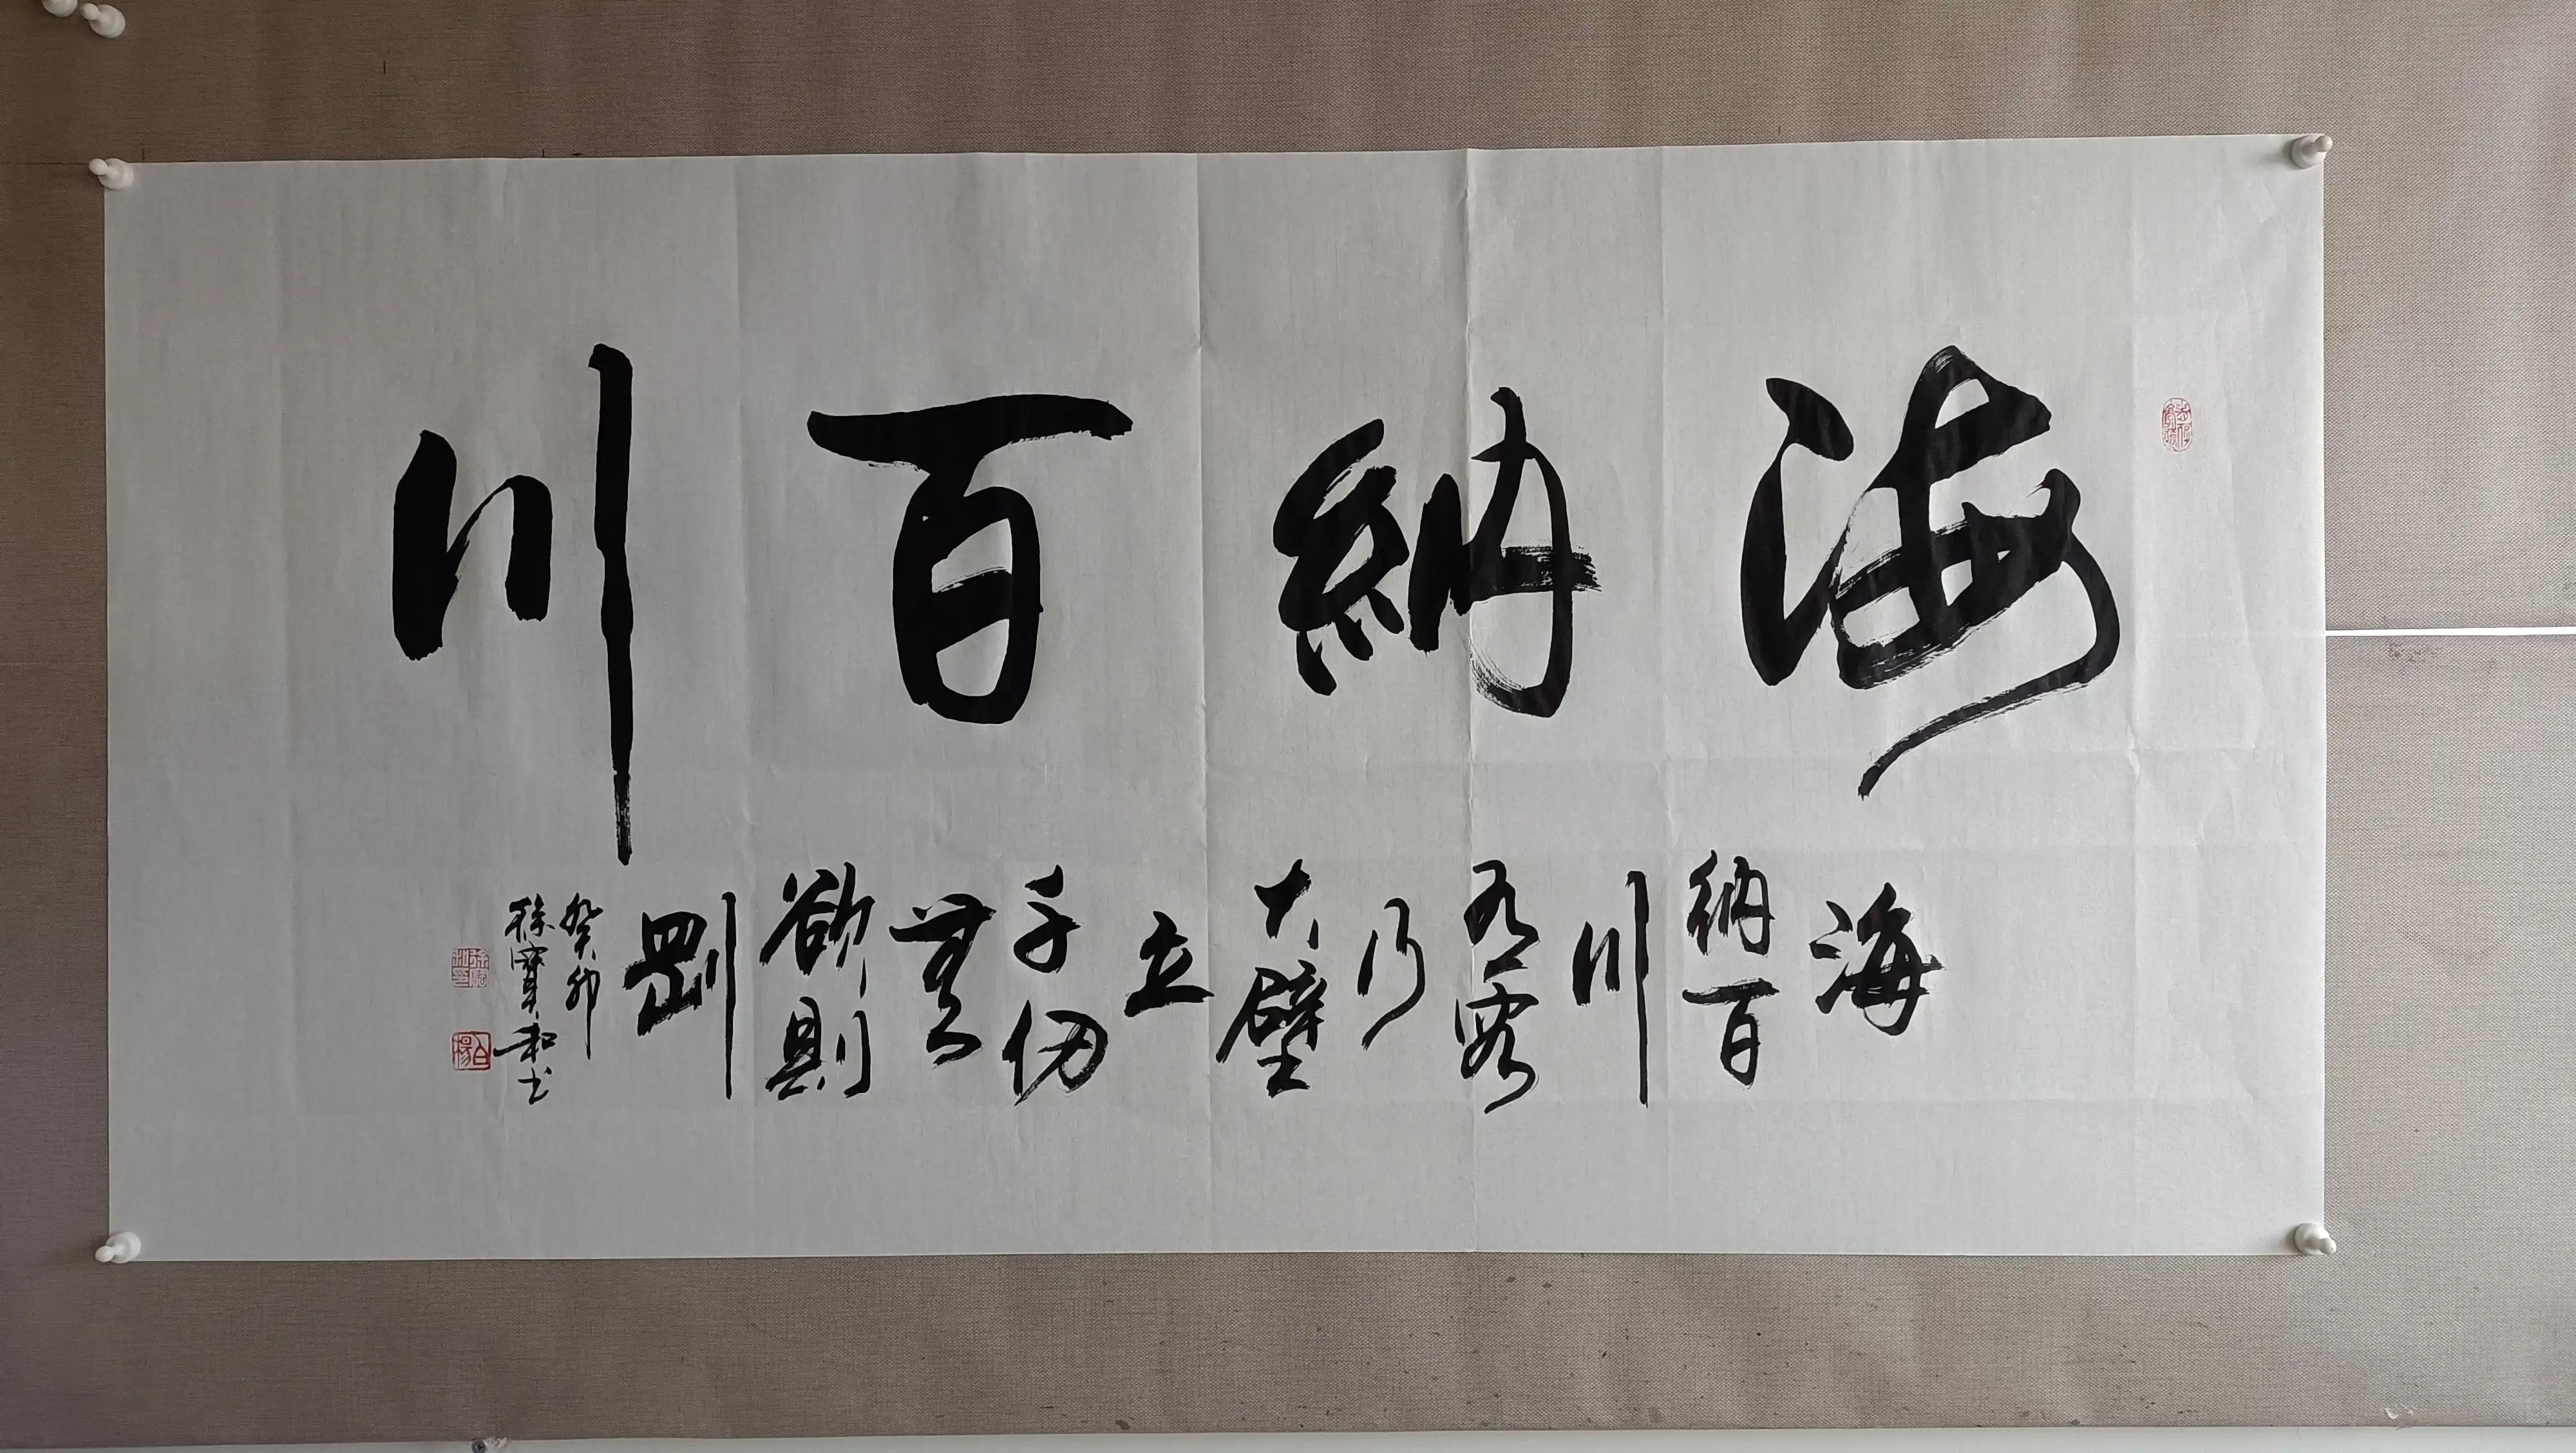 海納百川
海
納百
川
有容
乃
大壁
立
千仞
無
欲則
剛
癸卯
徐寶和书